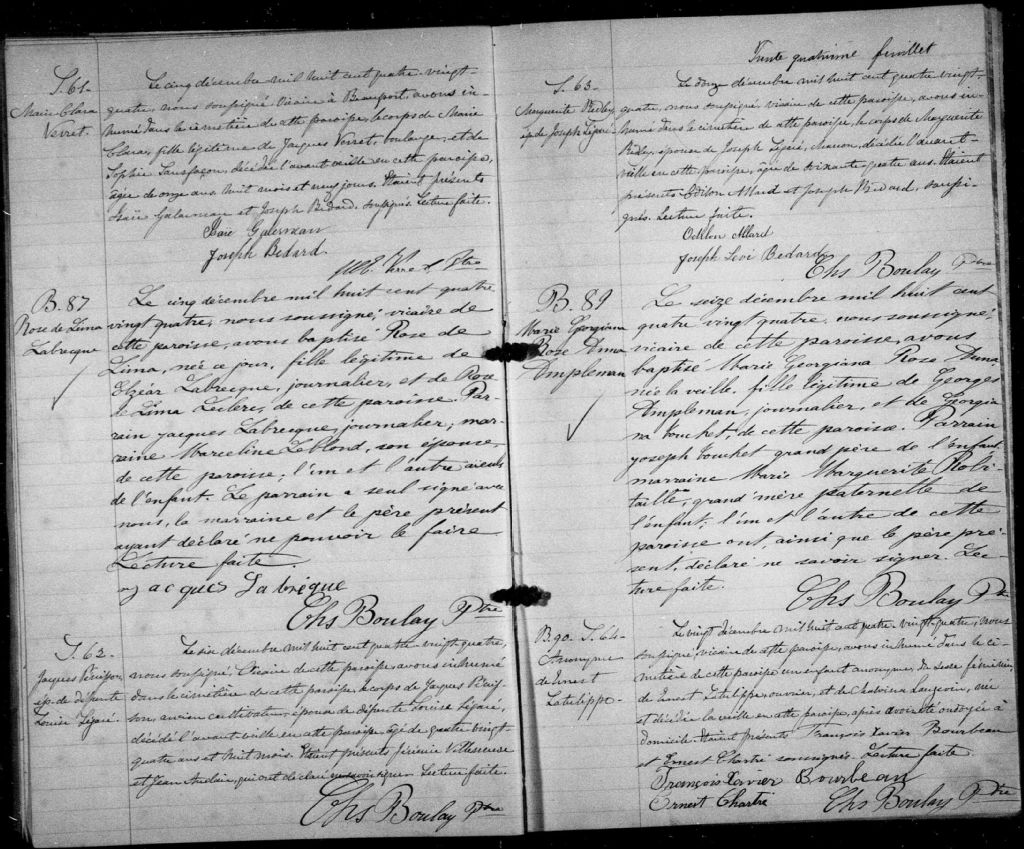 S. 61.
Marie Clara
Verret.
Le cinq décembre mil huit cent quatre-vingt-
quatre, nous soussigné Vicaire à Beauport, avons in-
humé dans le cimetière de cette paroisse, le corps de Marie
Clara, fille légitime de Jacques Verret, boulanger, et de
Sophie Sansfaçon, décédée l'avant veille en cette paroisse,
âgée de onze ans huit mois et jours. Etaient présents
Galarneau et Joseph Bédard, soussignés. Lecture faite.
Galarneau
Joseph Bedard
Ptre
B. 87
Rose de Lima
Labrecque
Le cinq décembre mil huit cent quatre
vingt quatre, nous soussigné, vicaire de
cette paroisse, avons baptisé Rose de
Lima, née ce jour, fille légitime de
Elzéar Labrecque, journalier, et de Rose
de Lima Leclerc, de cette paroisse. Par-
rain Jacques Labrecque, journalier; mar-
raine Marceline Leblond, son épouse,
de cette paroisse; l'un et l'autre aieuls
de l'enfant. Le parrain a seul signé avec
nous, la marraine et le père présent
ayant déclaré ne pouvoir le faire
Lecture faite.
jacques Labrèque
Ths Boulay Ptre
S. 62-
Jacques
ép. de défunte
Louise Légaré.
Le six décembre mil huit cent quatre vingt-quatre,
nous soussigné, Vicaire de cette paroisse, avons inhumé
dans le cimetière de cette paroisse, le corps de Jacques
ancien cultivateur, époux de défunte Louise Légaré,
décédé l'avant veille en cette paroisse, âgé de quatre vingt-
quatre ans et huit mois. Etaient présents Jérémie Villeneuve
et Jean Auclair, qui ont déclaré ne savoir signer. Lecture faite.
Ths Boulay Ptre
Trente quatrième feuillet
S. 63-
Marguerite
ép. de Joseph Légaré
Le onze décembre mil huit cent quatre vingt-
quatre, nous soussigné, vicaire de cette paroisse, avons in-
humé dans le cimetière de cette paroisse, le corps de Marguerite
épouse de Joseph Légaré, décédée l'avant-
veille en cette paroisse, âgée de soixante-quatre ans. Etaient
présents Odilon Allard et Joseph Bédard, soussi-
gnés. Lecture faite.
Odilon Allard
Joseph Levi Bedard
Ths Boulay Ptre
B. 89
Marie Georgiana
Rose Anna
Ampleman
Le seize décembre mil huit cent
quatre vingt quatre, nous soussigné,
vicaire de cette paroisse, avons
baptisé Marie Georgiana Rose Anna
née la veille, fille légitime de Georges
Ampleman, journalier, et de Georgia
na Touchet, de cette paroisse. Parrain
Joseph Touchet grand père de l'enfant
marraine Marie Marguerite Robi-
taille, grand'mère paternelle de
l'enfant; l'un et l'autre de cette
paroisse ont, ainsi que le père pré-
sent, déclaré ne savoir signer. Lec-
ture faite.
Ths Boulay Ptre
B. 90. S. 64-
Anonyme
de Ernest
Latulippe-
Le vingt décembre mil huit cent quatre-vingt-quatre, nous
soussigné, vicaire de cette paroisse, avons inhumé dans le ci-
metière de cette paroisse un enfant anonyme, du sexe féminin,
de Ernest Latulippe, ouvrier, et de Malvina Langevin, née
et décédée la veille en cette paroisse, après avoir été ondoyée à
domicile. Etaient présents François Xavier Bourbeau
et Ernest Chartré soussignés. Lecture faite
François Xavier Bourbeau
Ernest Chartré
Ths Boulay Ptre